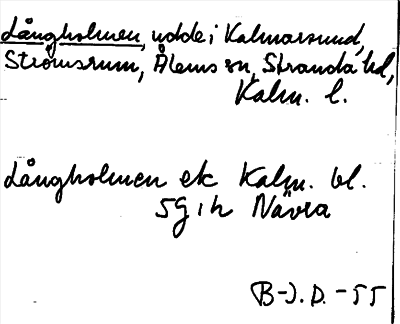 Långholmen, udde i Kalmarsund,
Strömsrum, Ålems sn, Stranda hd,
Kalm. l.
Långholmen ek Kalm. bl.
5G1h Nävra
B-J. D. -55